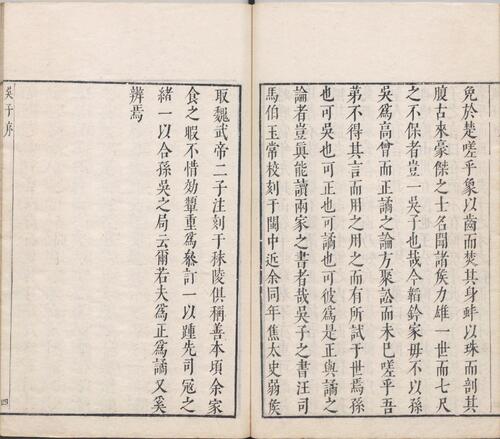 免於楚嗟乎象以齒而焚其身蚌以珠而剖其
腹古來豪傑之士名聞諸矦力雄一世而七尺
之不保者豈一吳子也哉今韜鈐家毋不以孫
吳爲高曾而正譎之論方聚訟而未已嗟乎吾
第不得其言而用之用之而有所試于世焉孫
也可吳也可正也可譎也可彼爲是正與譎之
論者豈眞能讀兩家之書者哉吳子之書汪司
馬伯玉常校刻于閩中近余同年焦太史弱矦
取魏武帝二子注刻于秣陵俱稱善本頃余家
食之暇不惜効顰重爲叅訂一以踵先司寇之
緒一以合孫吳之局云爾若夫爲正爲譎又奚
辨焉
吳子序
四